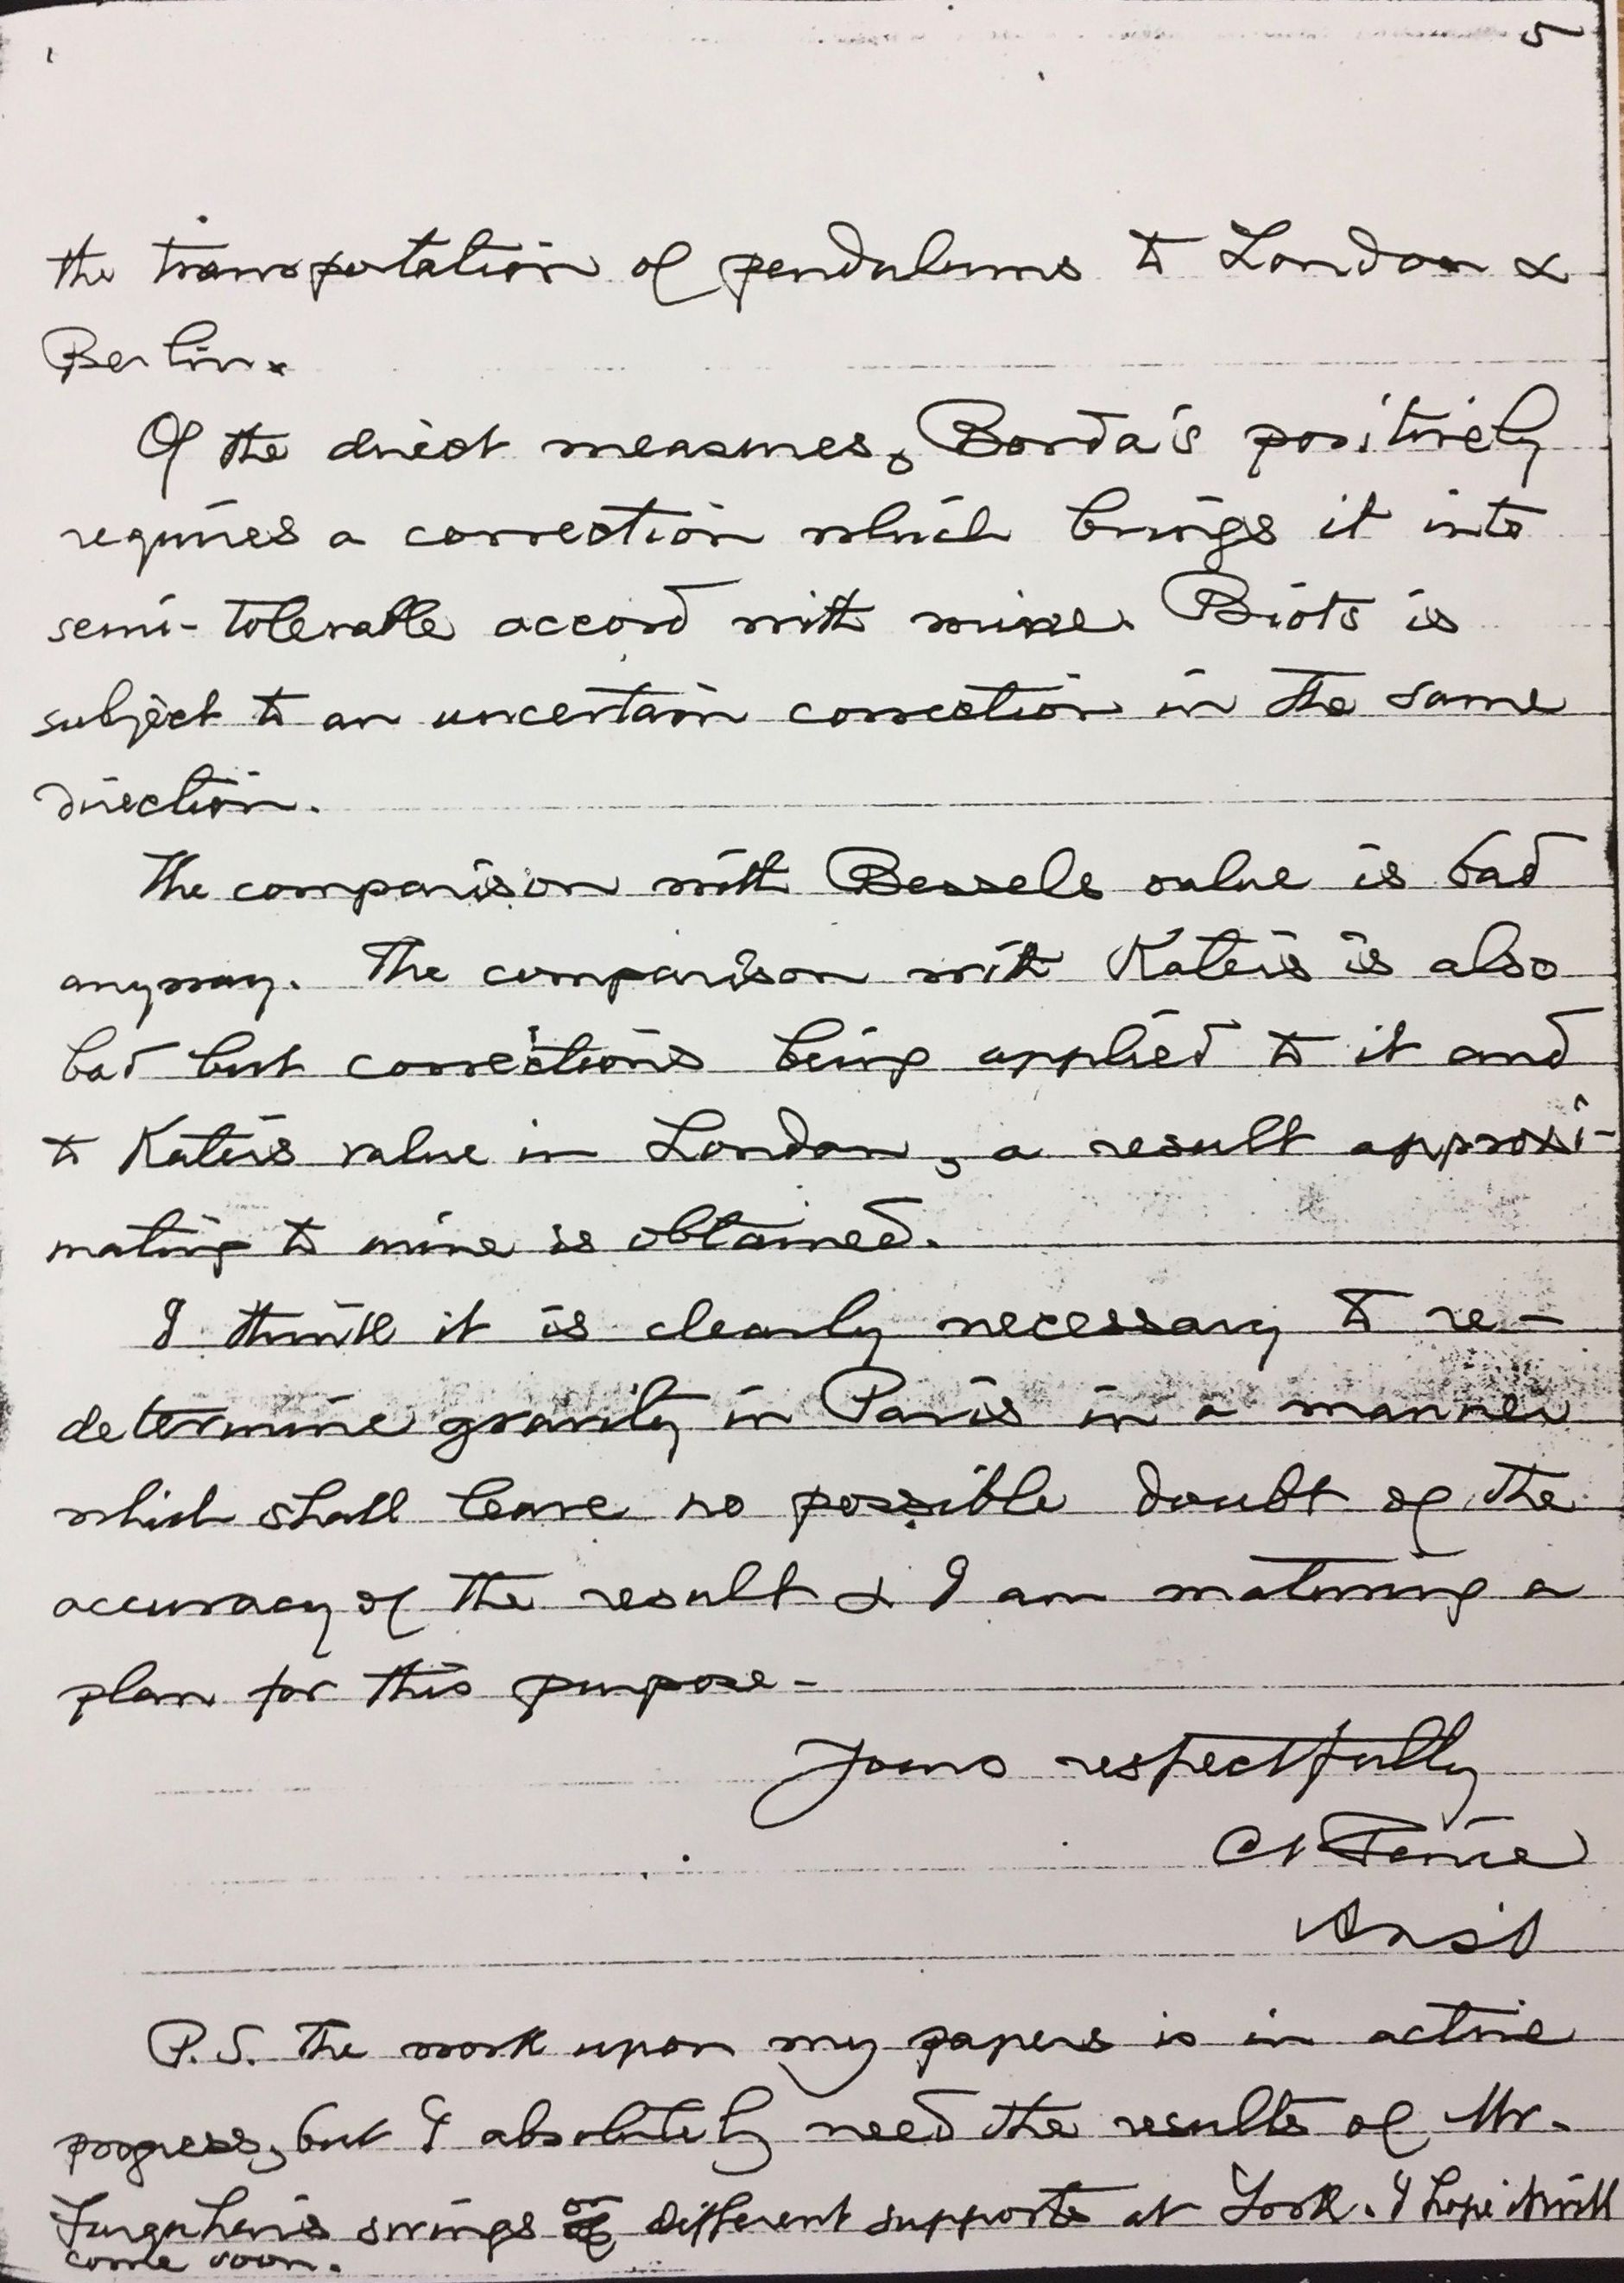 5
the transportation of pendulums to London &
Berlin.
Of the direct measures, Borda's positively
requires a correction which brings it into
semi-tolerable accord with mine. Biots is
subject to an uncertain correction in the same
direction.
The comparison with Bessels value is bad
anyway. The comparison with Katers is also
bad but corrections being applied to it and
to Katers value in London, a result approxi-
mating to mine is obtained.
I think it is clearly necessary to re-
determine gravity in Paris in a manner
which shall leave no possible doubt of the
accuracy of the result & I am maturing a
plan for this purpose-
Yours respectfully
CS Peirce
Ass't
P.S. The work upon my papers is in active
progress, but I absolutely need the results of Mr.
Farquhar's swings on different supports at York. I hope it will
come soon.